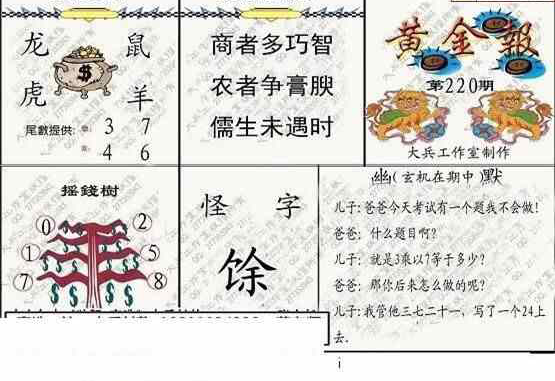 龙 鼠
虎 羊
尾數提供: 3 7
4 6
$
商者多巧智
农者争膏腴
儒生未遇时
黄金報
第220期
大兵工作室制作
摇錢樹
0 2
1 5
7 8
怪 字
馀
幽(玄机在期中)默
儿子: 爸爸今天考试有一个题我不会做!
爸爸: 什么题目啊?
儿子: 就是3乘以7等于多少?
爸爸: 那你后来怎么做的呢?
儿子: 我管他三七二十一, 写了一个24上
去.